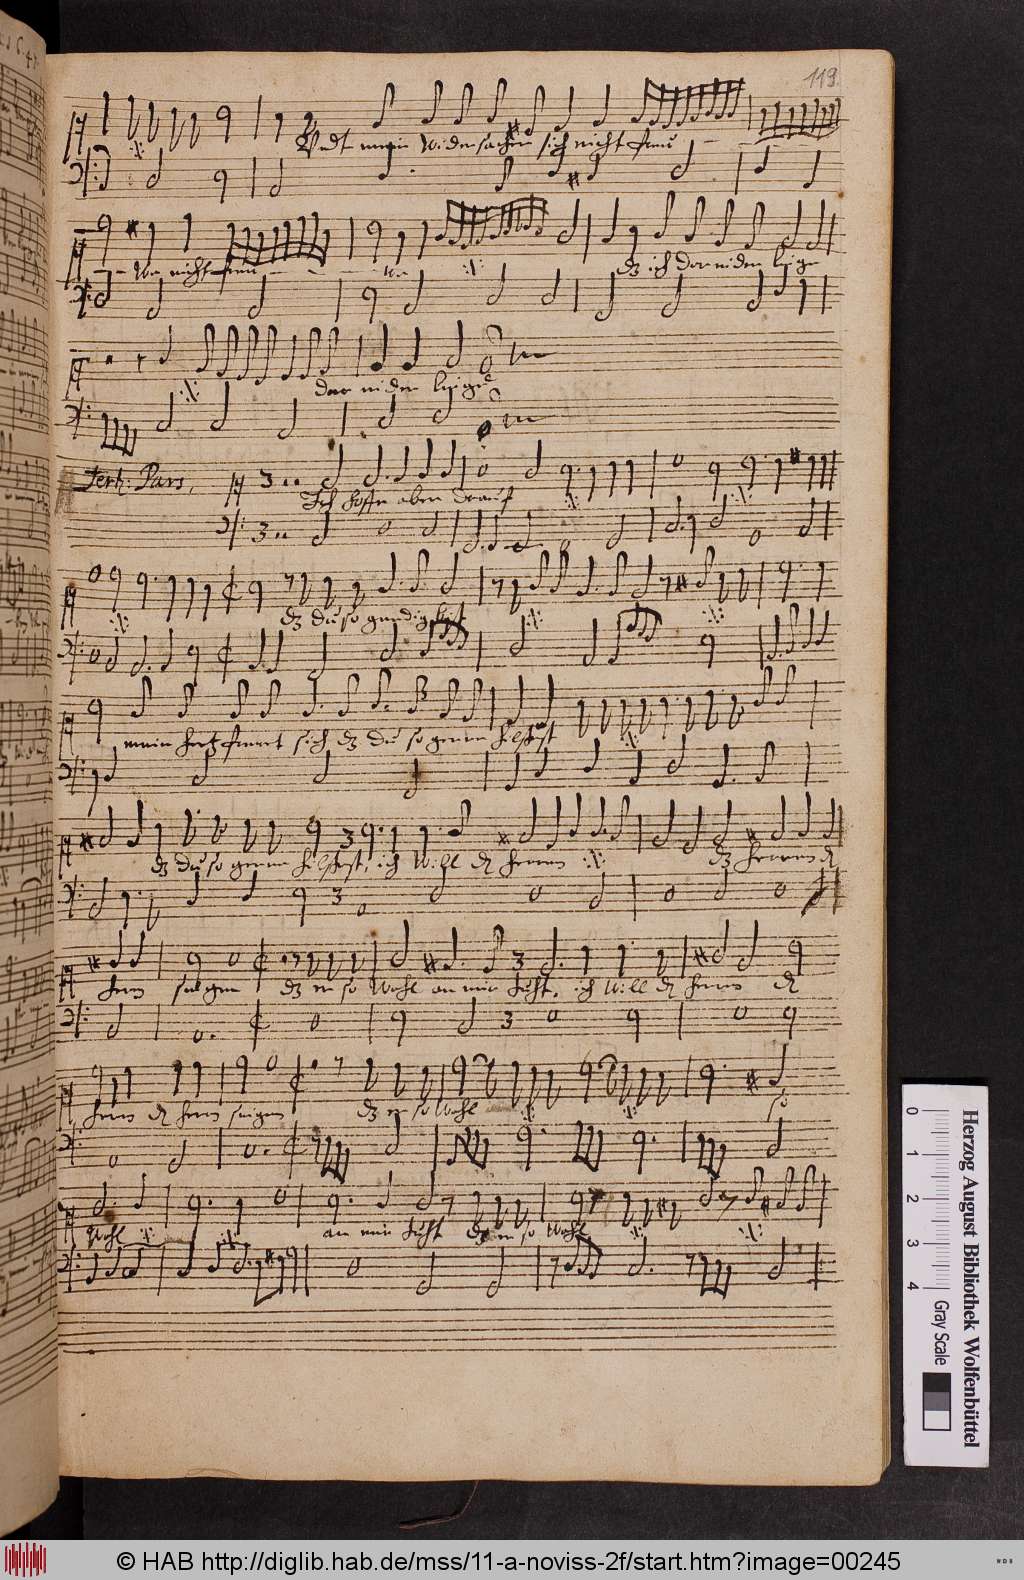 119
Undt mein widersacher sich nicht freu
nicht freu
dz ich darnider lige
darnider lige
Terti: Pars,
Ich hoffe aber drauf
dz du so gnedig bist
mein hertz freuet sich dz du so gerne hilffest
dz du so gerne hilffest, ich will dem herren dem herren
herrn singen dz er so wohl an mir thut, ich will dem herrn
herrn dem herrn singen dz er so wohl so
wohl an mir thut dz er so wohl
0 1 2 3 4
Gray Scale
Herzog August Bibliothek Wolfenbüttel
© HAB http://diglib.hab.de/mss/11-a-noviss-2f/start.htm?image=00245